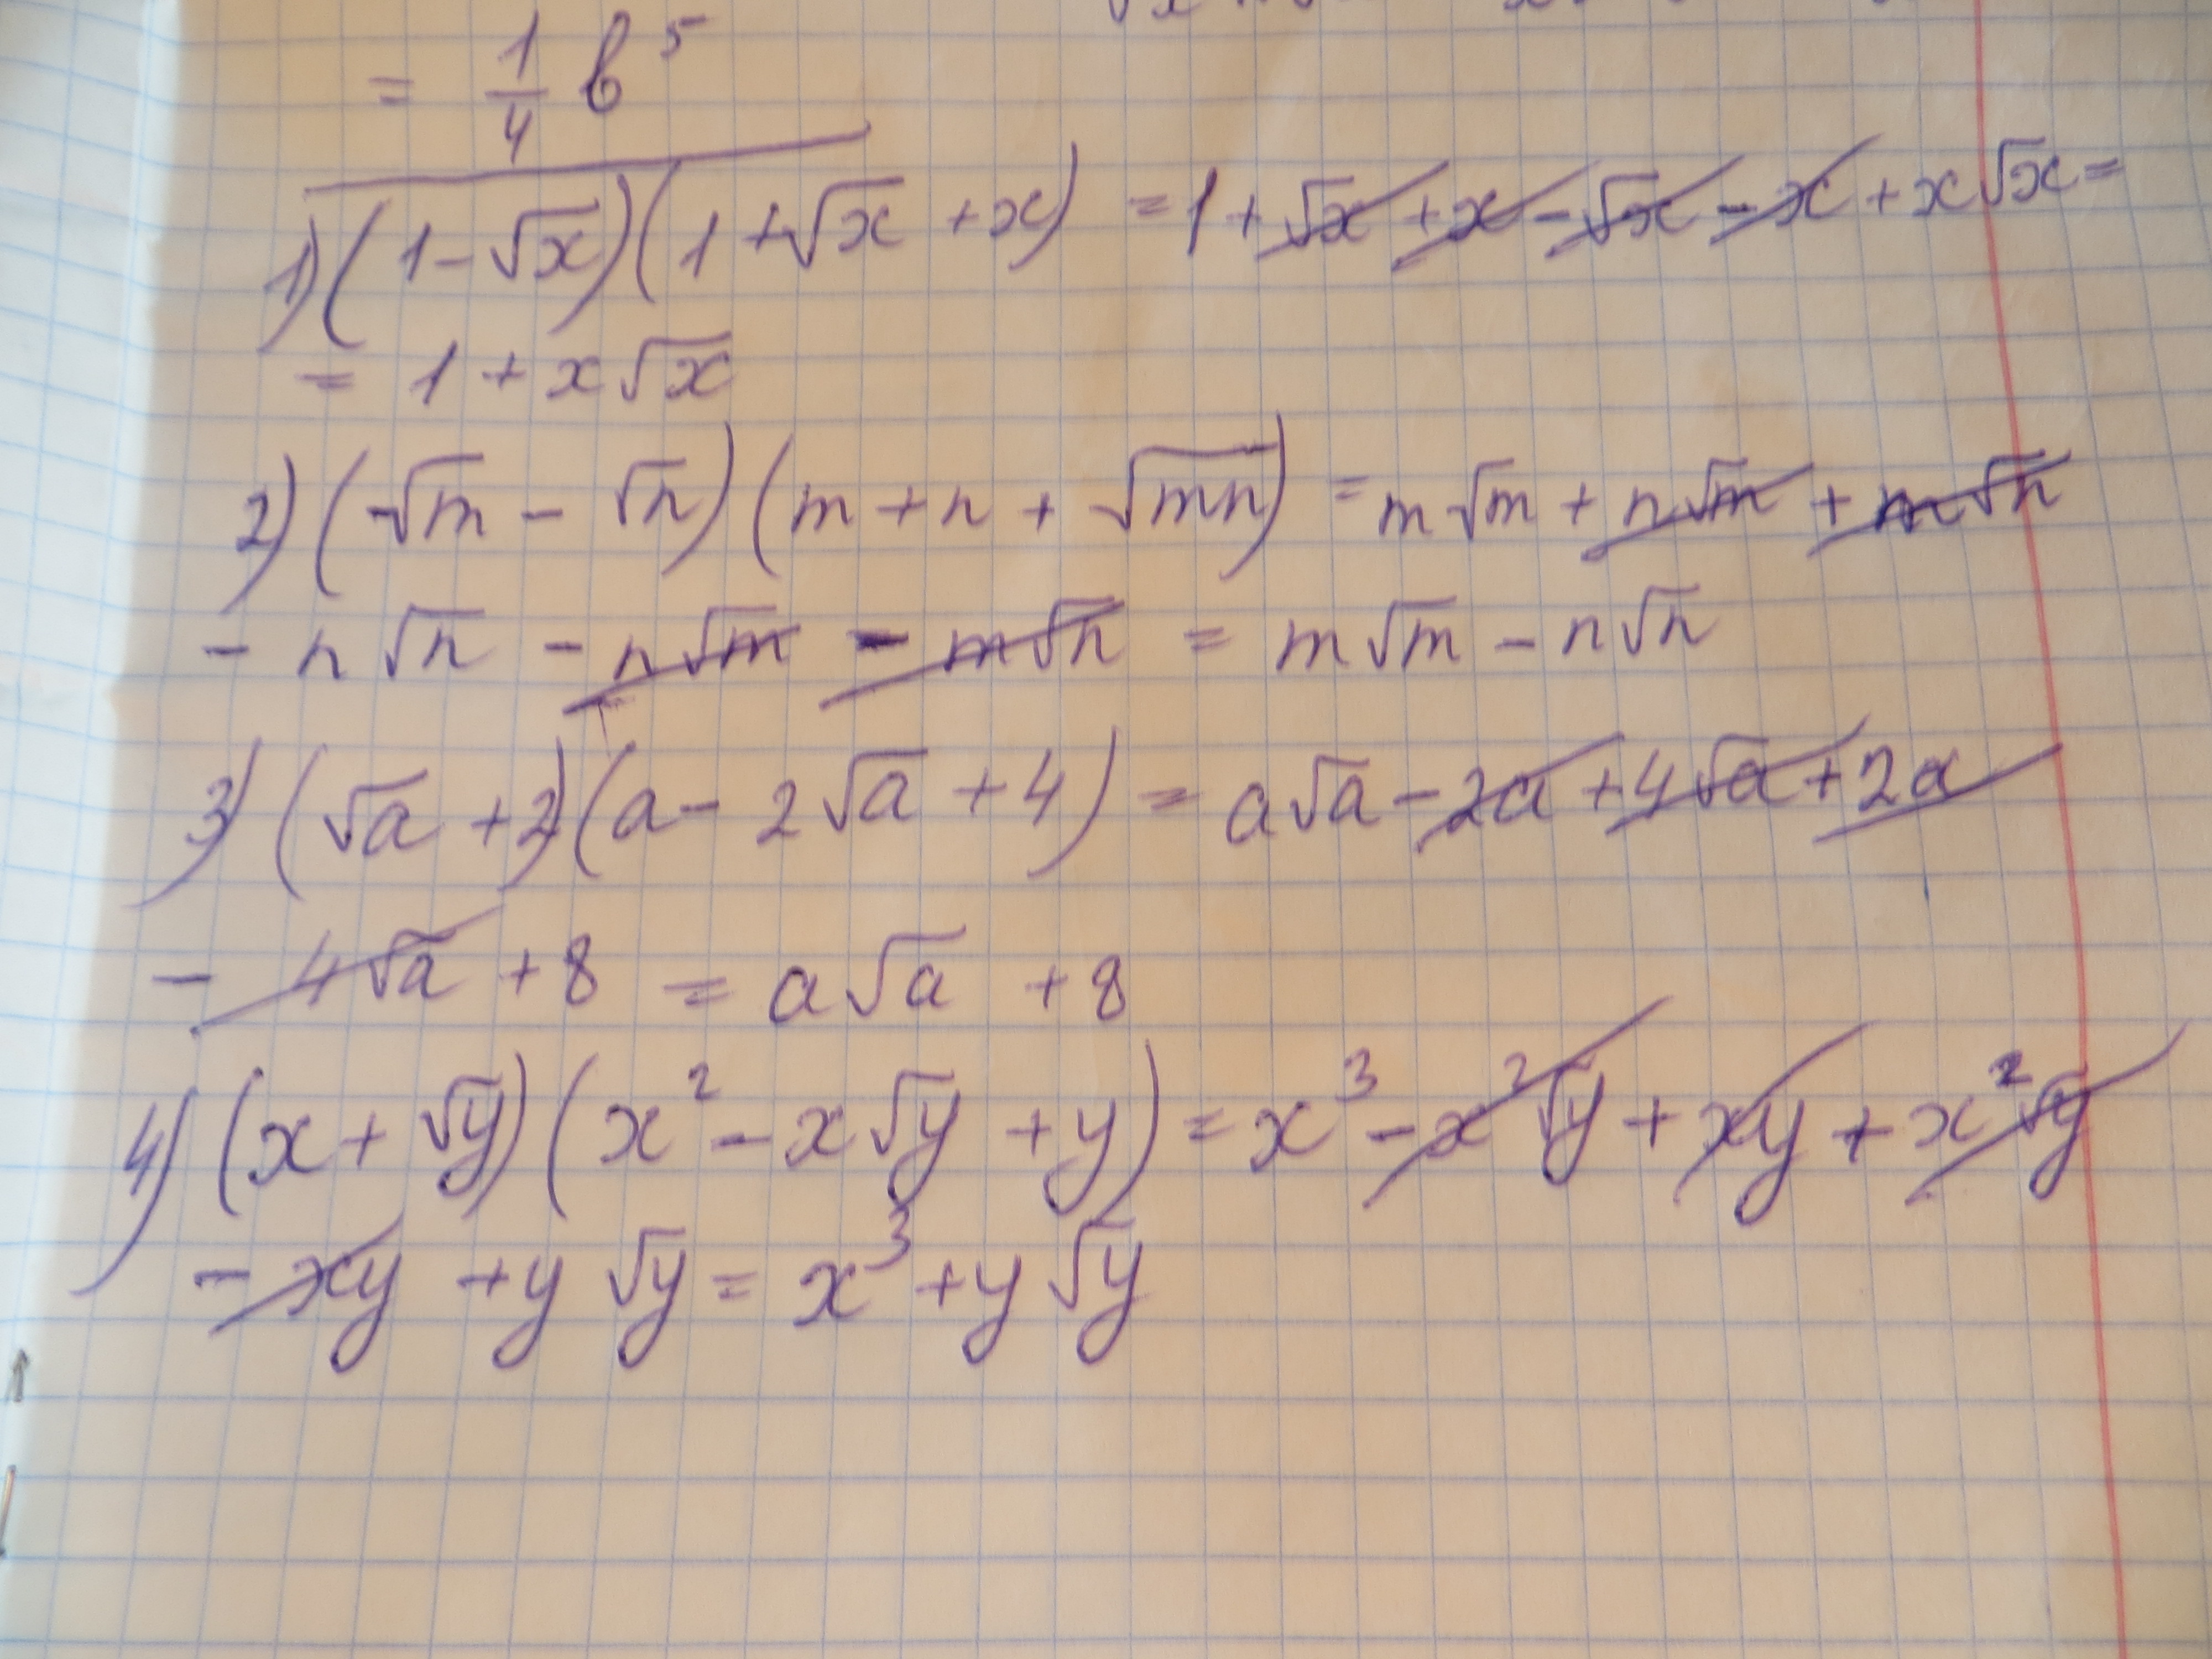 = 1/4 b⁵
1) (1-√x)(1+√x+x) = 1+√x+x-√x-x+x√x=
= 1+x√x
2) (√m - √n)(m+n+√mn) = m√m + n√m + m√n
- n√n - n√m - m√n = m√m - n√n
3) (√a+2)(a-2√a+4) = a√a-2a+4√a+2a
- 4√a+8 = a√a+8
4) (x+√y)(x²-x√y+y) = x³-x²√y+xy+x²√y
-xy+y√y = x³+y√y